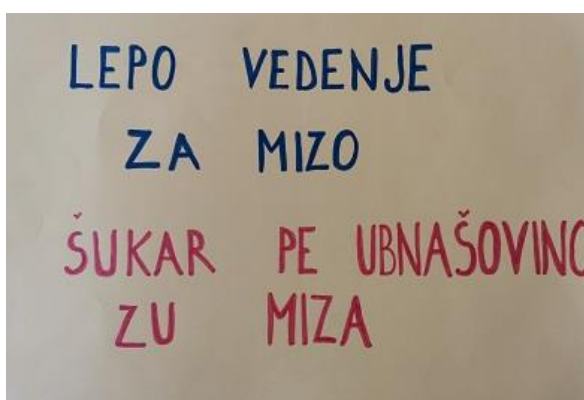 LEPO VEDENJE
ZA MIZO
ŠUKAR PE UBNAŠOVINO
ZU MIZA